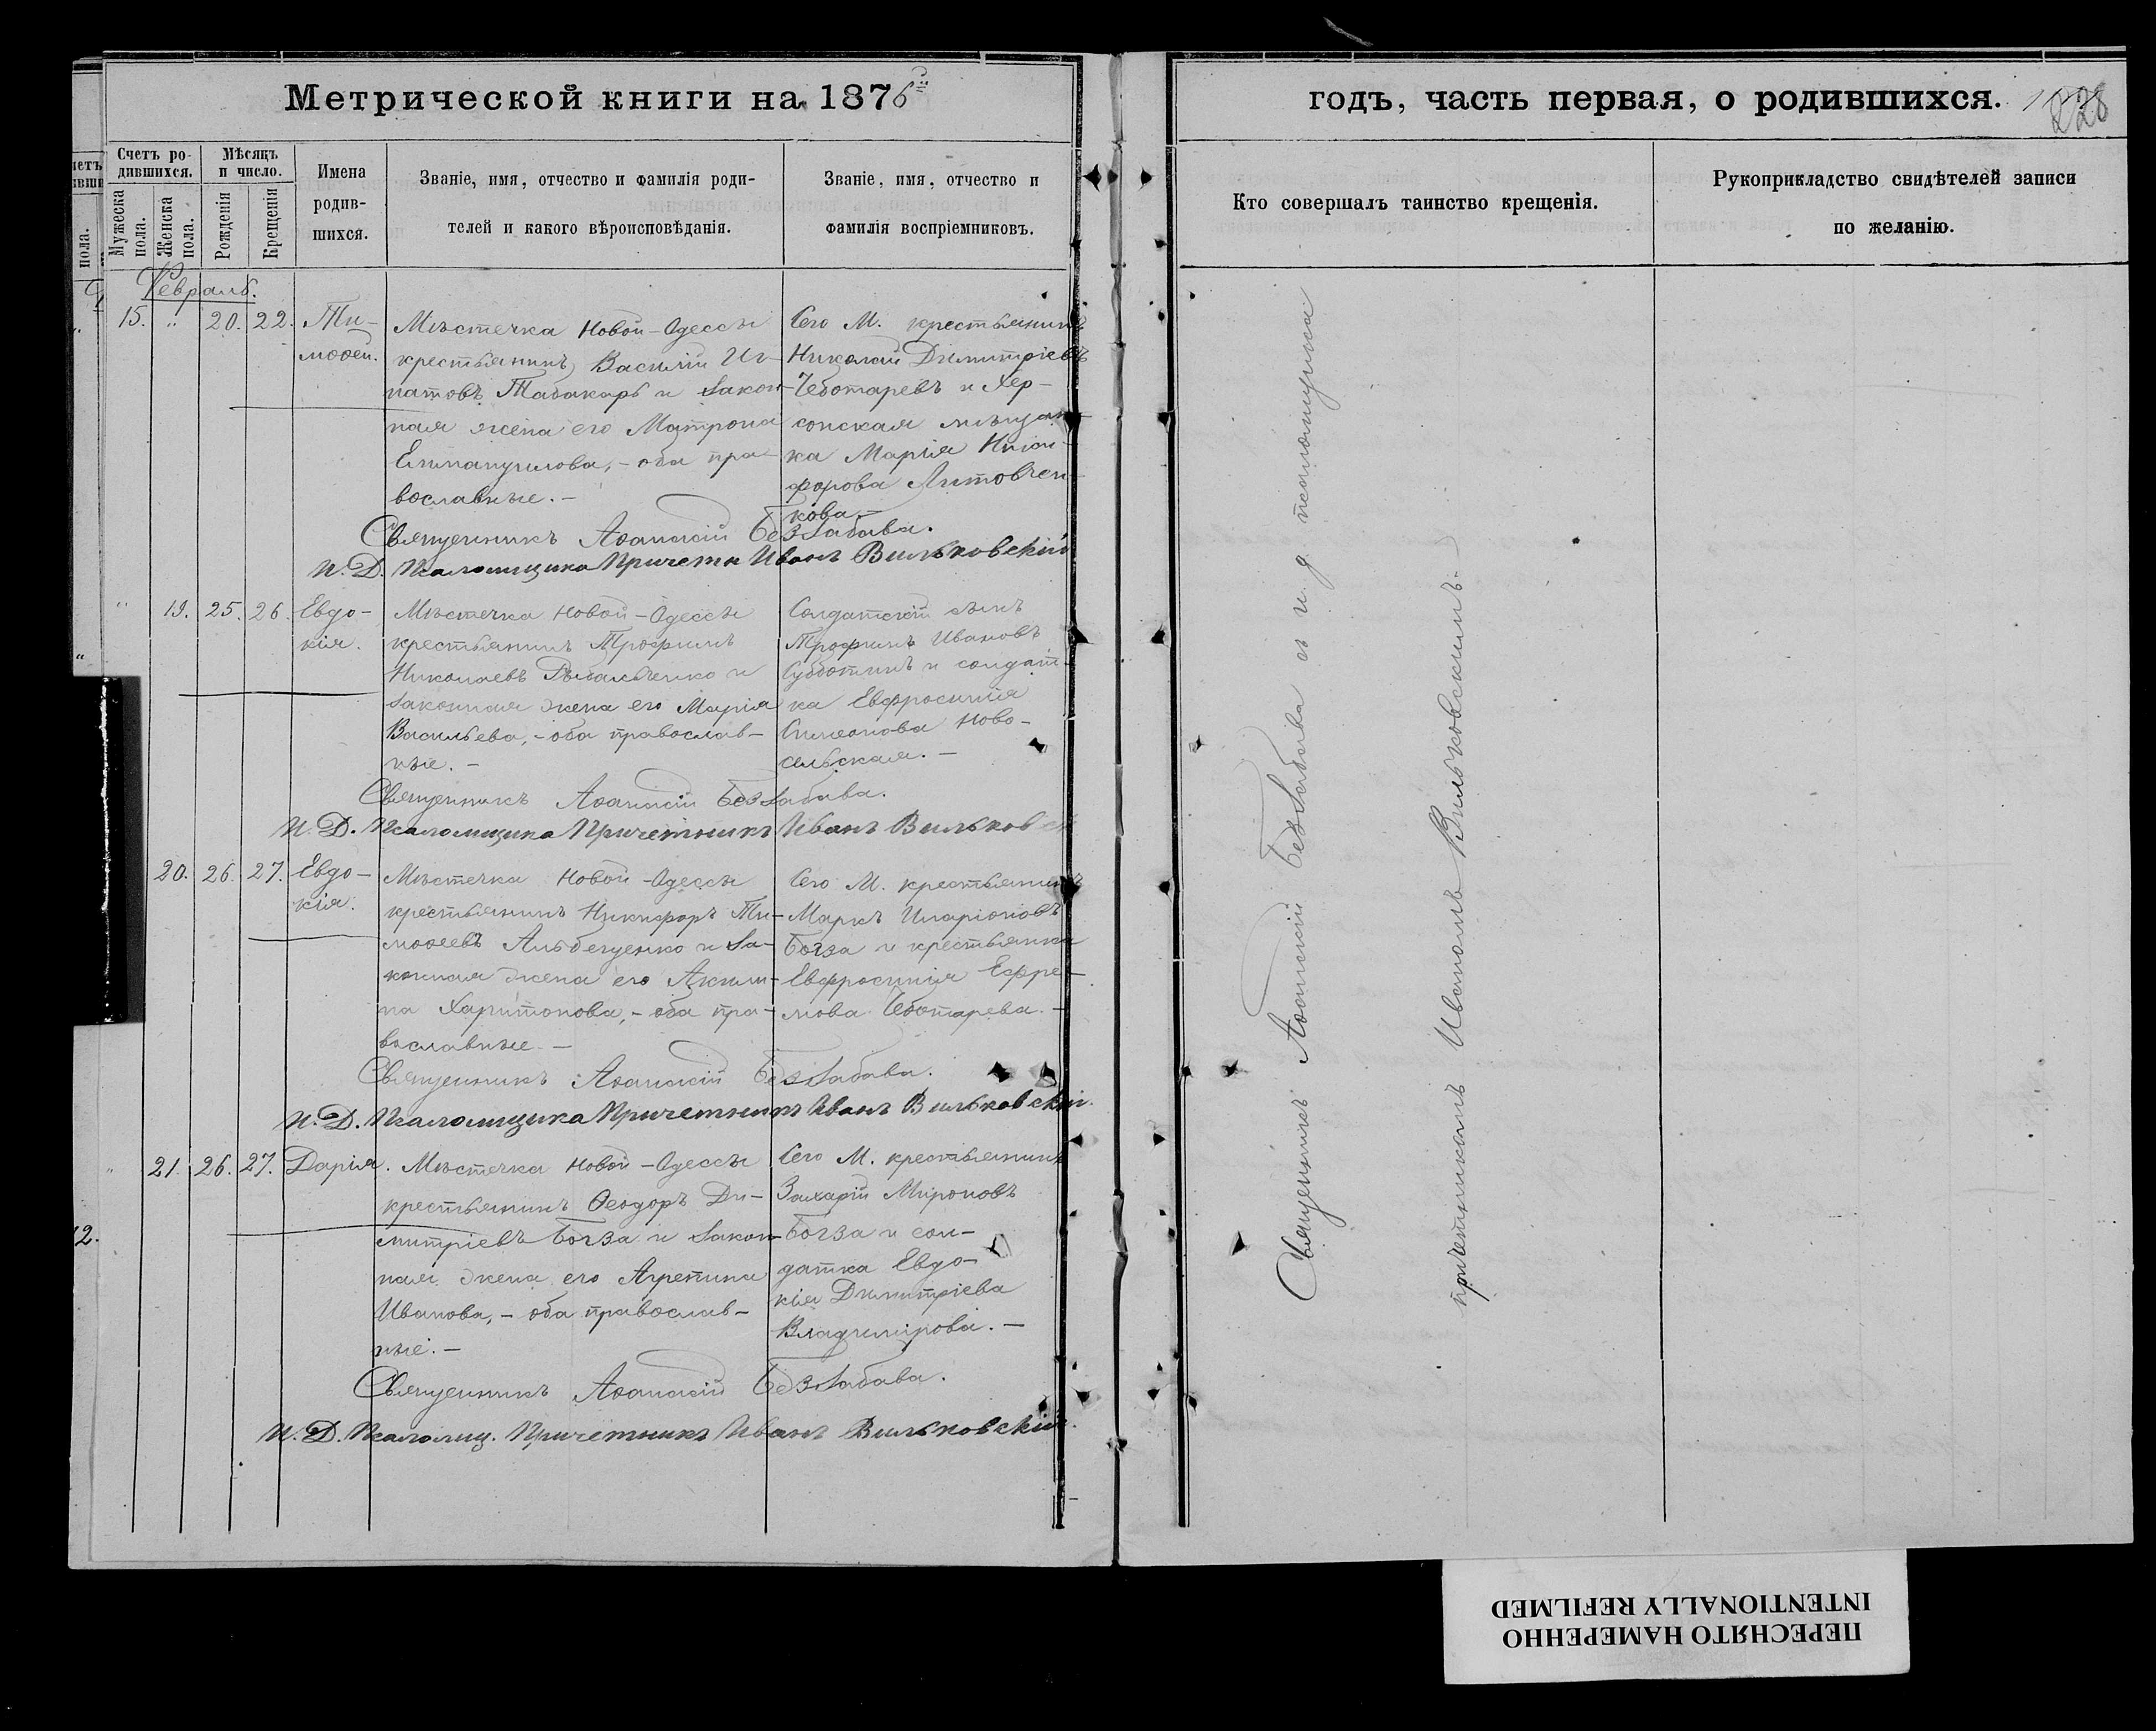 Метрической книги на 1876й
Счетъ ро-
дившихся.
Мѣсяцъ
и число.
Мужеска
пола.
Женска
пола.
Рожденія
Крещенія
Имена
родив-
шихся.
Званіе, имя, отчество и фамилія роди-
телей и какого вѣроисповѣданія.
Званіе, имя, отчество и
фамилія воспріемниковъ.
Февраль.
15. " 20. 22. Ти-
моѳей.
Мѣстечка Новой-Одессы
крестьянинъ Василій Иг-
натовъ Табакарь и закон-
ная жена его Матрона
Еммануилова, - оба пра-
вославные. -
Сего М. крестьянинъ
Николай Димитріевъ
Чеботаревъ и Хер-
сонская мѣщан-
ка Марія Ники-
форова Литовчен-
кова. -
Священникъ Аѳанасій Беззабава.
И. Д. Псаломщика Причетн Иванъ Вильковскій
" 19. 25. 26. Евдо-
кія.
Мѣстечка Новой-Одессы
крестьянинъ Трофимъ
Николаевъ Рыбальченко и
законная жена его Марія
Васильева, - оба православ-
ные. -
Солдатскій сынъ
Трофимъ Ивановъ
Субботинъ и солдат-
ка Евфросинія
Симеонова Ново-
сельская. -
Священникъ Аѳанасій Беззабава.
И. Д. Псаломщика Причетникъ Иванъ Вильковск
20. 26. 27. Евдо-
кія.
Мѣстечка Новой-Одессы
крестьянинъ Никифоръ Ти-
моѳеевъ и за-
конная жена его Акили-
на Харитонова, - оба пра-
вославные. -
Сего М. крестьянинъ
Маркъ Иларіоновъ
Богза и крестьянка
Евфросинія Ефре-
мова Чеботарева. -
Священникъ Аѳанасій Беззабава.
И. Д. Псаломщика Причетникъ Иванъ Вильковскій.
" 21. 26. 27. Дарія.
Мѣстечка Новой-Одессы
крестьянинъ Ѳеодоръ Ди-
митріевъ Богза и закон-
ная жена его Агрепина
Иванова, - оба православ-
ные. -
Сего М. крестьянинъ
Захарій Мироновъ
Богза и сол-
датка Евдо-
кія Димитріева
Владимірова. -
Священникъ Аѳанасій Беззабава.
И. Д. Псаломщ. Причетникъ Иванъ Вильковскій.
12.
годъ, часть первая, о родившихся.
228
Кто совершалъ таинство крещенія.
Рукоприкладство свидѣтелей записи
по желанію.
Священникъ Аѳанасій Беззабава съ и. д. псаломщика
причетникомъ Иваномъ Вильковскимъ.
ПЕРЕСНЯТО НАМЕРЕННО
INTENTIONALLY REFILMED